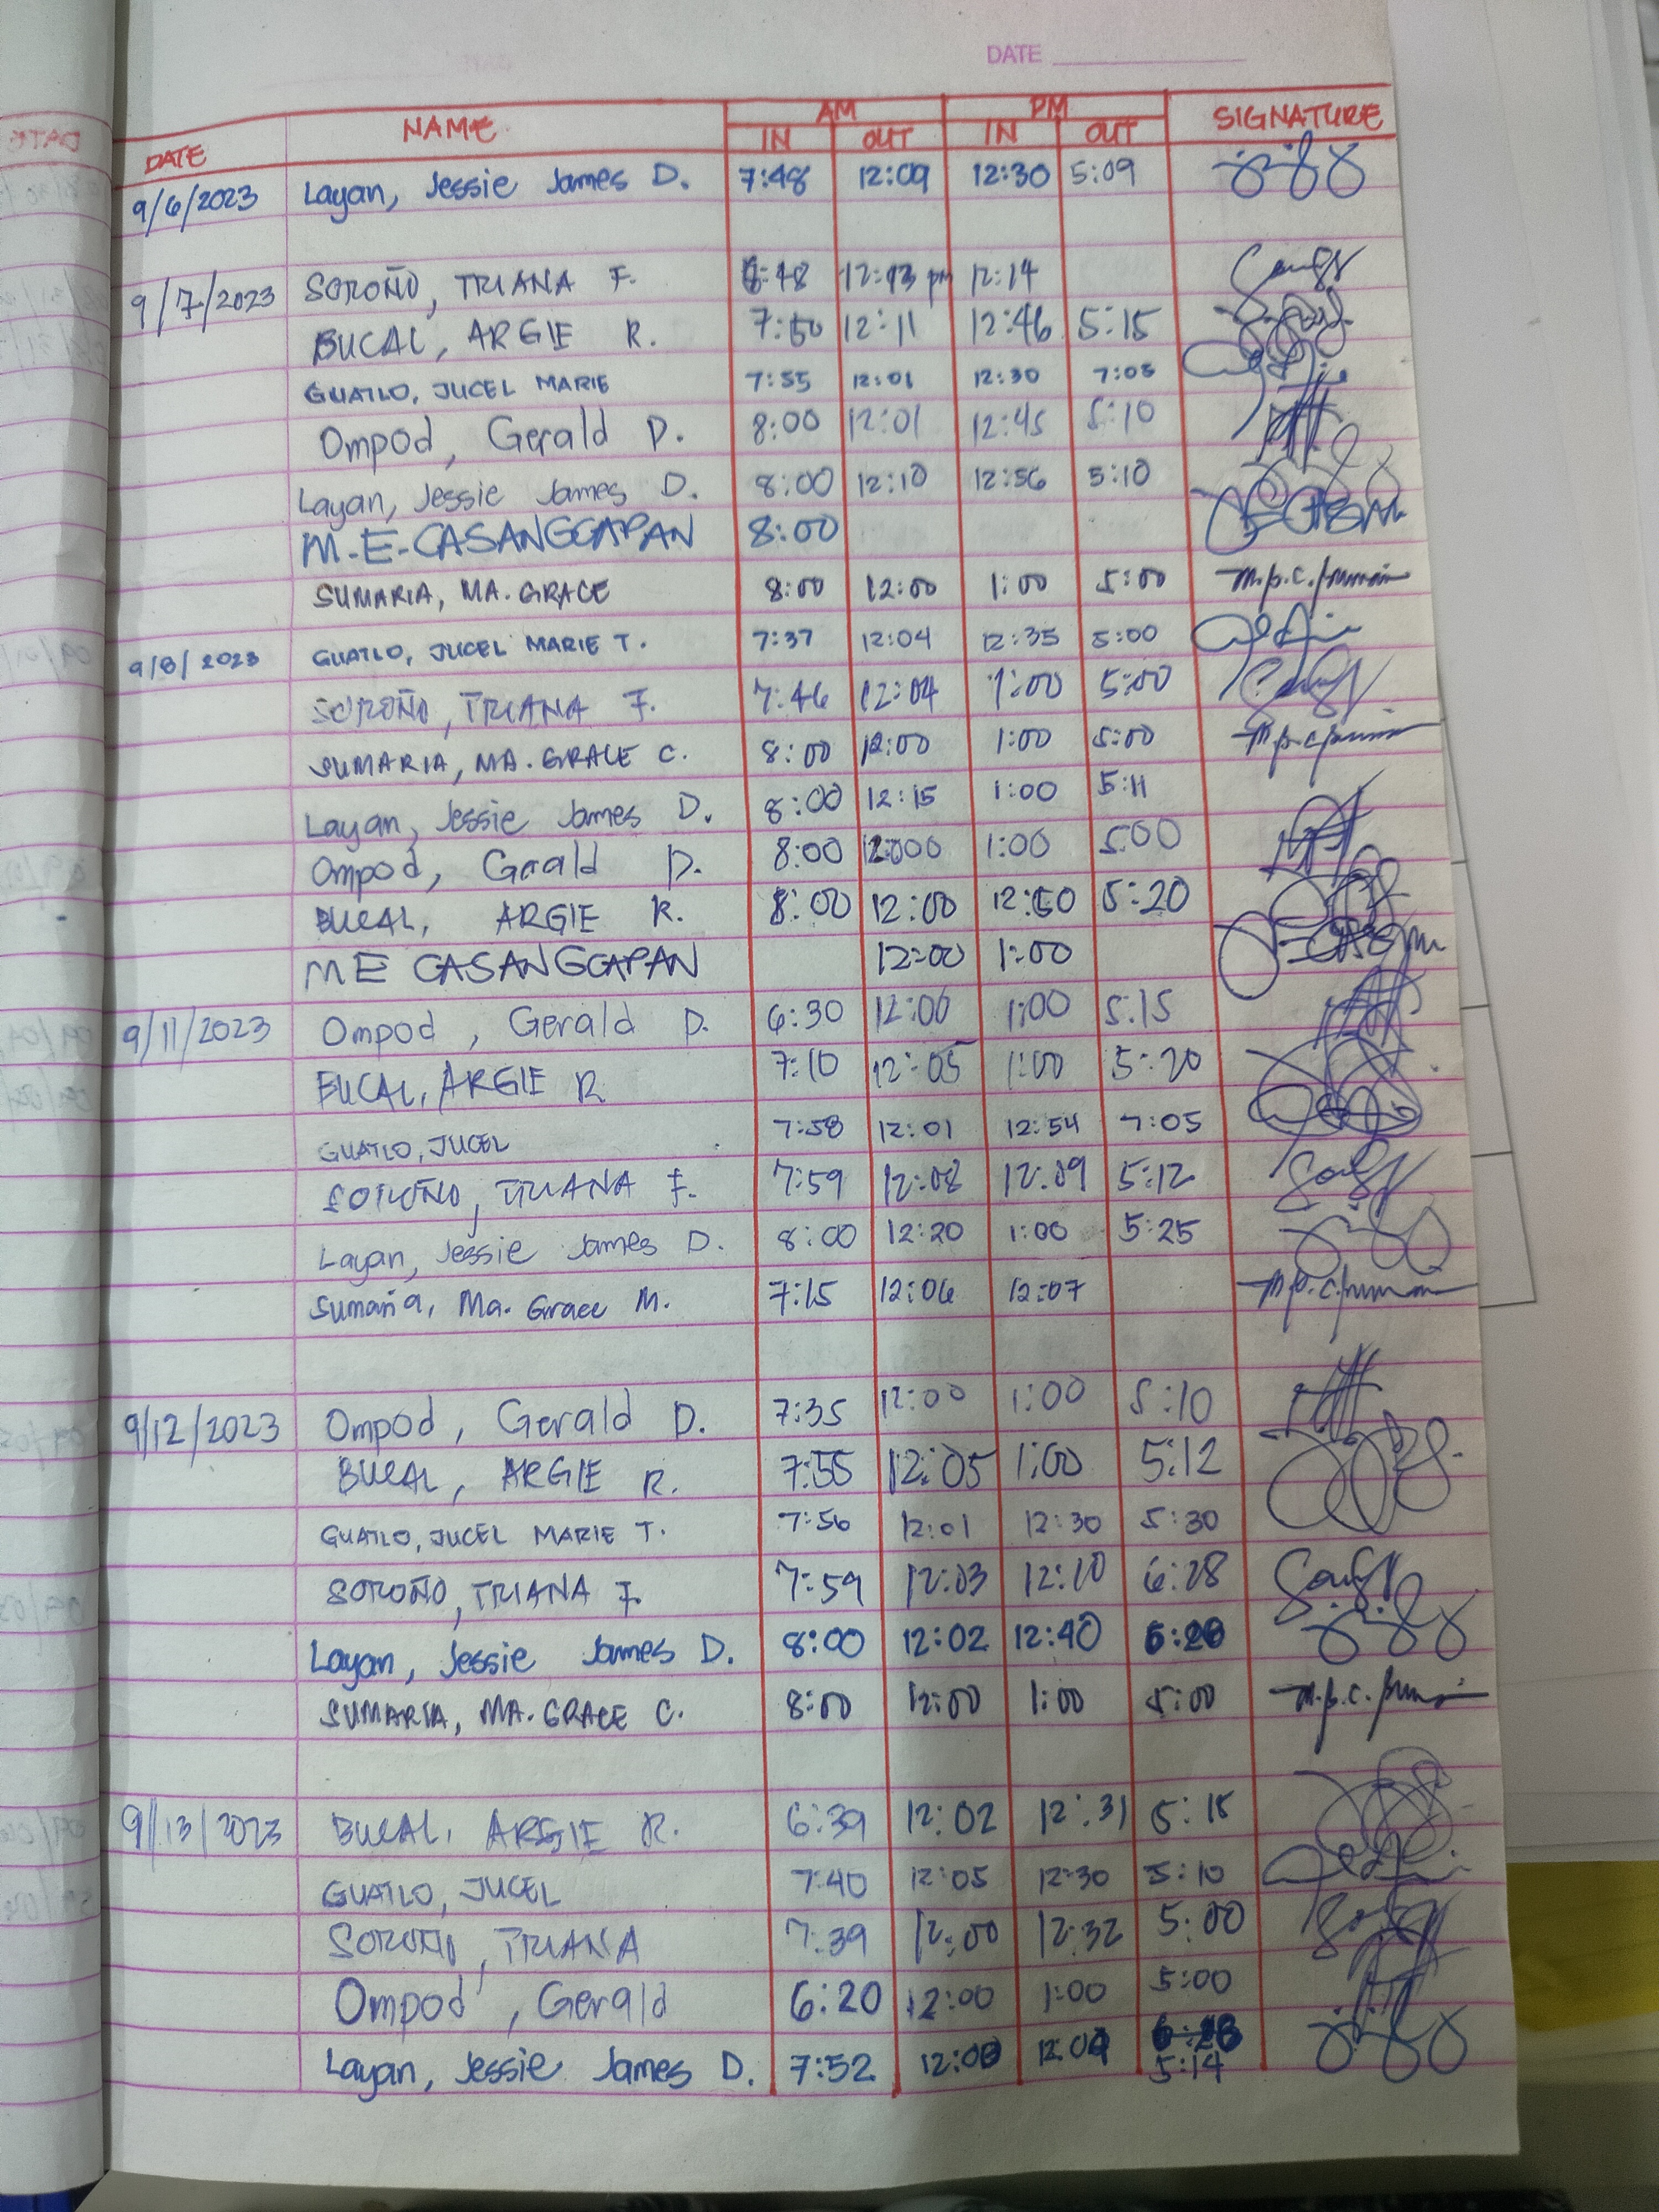 DATE
AM PM
DATE NAME IN OUT IN OUT SIGNATURE
9/6/2023 Layan, Jessie James D. 7:48 12:09 12:30 5:09
9/7/2023 SOROÑO, TRIANA F. 12:13 pm 12:14
BUCAL, ARGIE R. 7:50 12:11 12:46 5:15
GUATLO, JUCEL MARIE 7:55 12:01 12:30 7:05
Ompod, Gerald D. 8:00 12:01 12:45 5:10
Layan, Jessie James D. 8:00 12:10 12:56 5:10
M.E-CASANGCAPAN 8:00
SUMARIA, MA. GRACE 8:00 12:00 1:00 5:00
9/8/2023 GUATLO, JUCEL MARIE T. 7:37 12:04 12:35 5:00
SOROÑO, TRIANA F. 7:46 12:04 1:00 5:00
SUMARIA, MA. GRACE C. 8:00 12:00 1:00 5:00
Layan, Jessie James D. 8:00 12:15 1:00 5:11
Ompod, Gerald D. 8:00 12:000 1:00 5:00
BUCAL, ARGIE R. 8:00 12:00 12:50 5:20
M E CASANGCAPAN 12:00 1:00
9/11/2023 Ompod, Gerald D. 6:30 12:00 1:00 5:15
BUCAL, ARGIE R 7:10 12:05 1:00 5:20
GUATLO, JUCEL 7:58 12:01 12:54 7:05
SOROÑO, TRIANA F. 7:59 12:08 12:09 5:12
Layan, Jessie James D. 8:00 12:20 1:00 5:25
Sumaria, Ma. Grace M. 7:15 12:06 12:07
9/12/2023 Ompod, Gerald D. 7:35 12:00 1:00 5:10
BUCAL, ARGIE R. 7:55 12:05 1:00 5:12
GUATLO, JUCEL MARIE T. 7:56 12:01 12:30 5:30
SOROÑO, TRIANA F. 7:59 12:03 12:10 6:28
Layan, Jessie James D. 8:00 12:02 12:40
SUMARIA, MA. GRACE C. 8:00 12:00 1:00 5:00
9/13/2023 BUCAL, ARGIE R. 6:39 12:02 12:31 5:15
GUATLO, JUCEL 7:40 12:05 12:30 5:10
SOROÑO, TRIANA 7:39 12:00 12:32 5:00
Ompod, Gerald 6:20 12:00 1:00 5:00
Layan, Jessie James D. 7:52 12:00 5:14